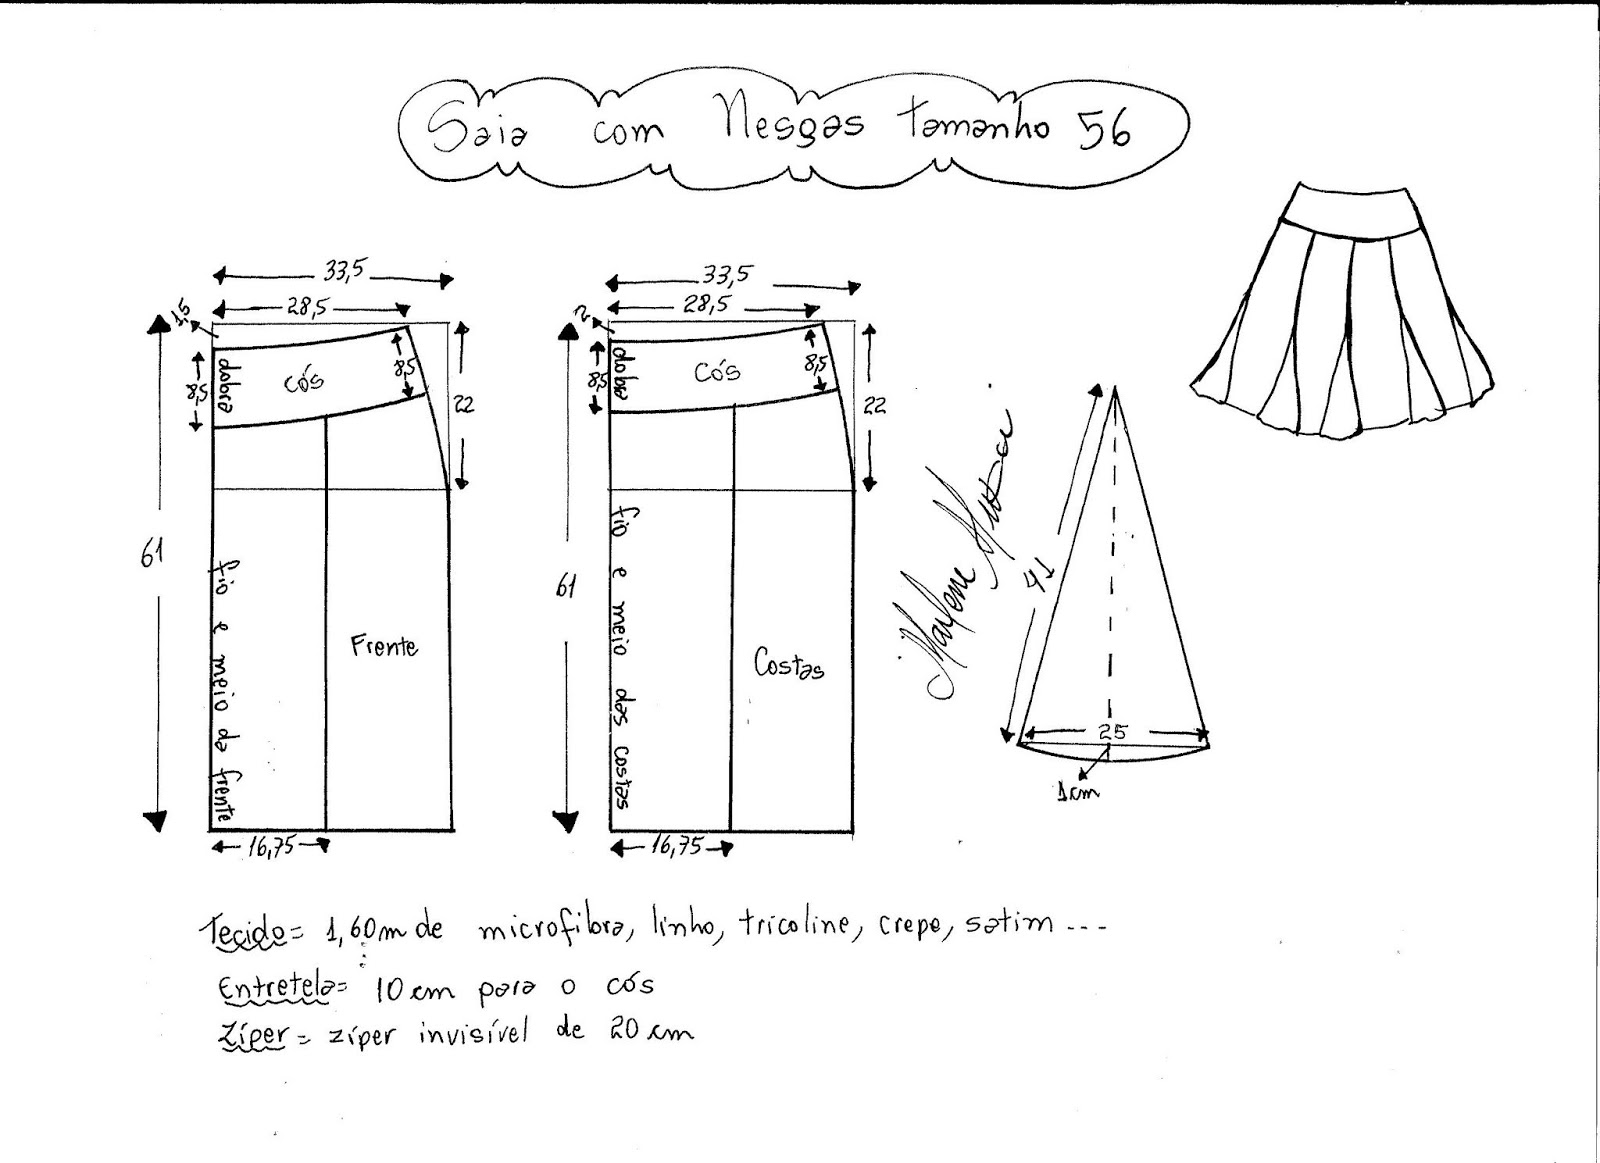 Saia com Nesgas tamanho 56
33,5
28,5
1,5
8,5
dobra
cós
8,5
22
61
fio e meio da frente
Frente
16,75
33,5
28,5
2
8,5
dobra
cós
8,5
22
61
fio e meio das costas
Costas
16,75
Marlene
41
25
1cm
Tecido= 1,60m de microfibra, linho, tricoline, crepe, satim ...
Entretela= 10 cm para o cós
Zíper= zíper invisível de 20 cm